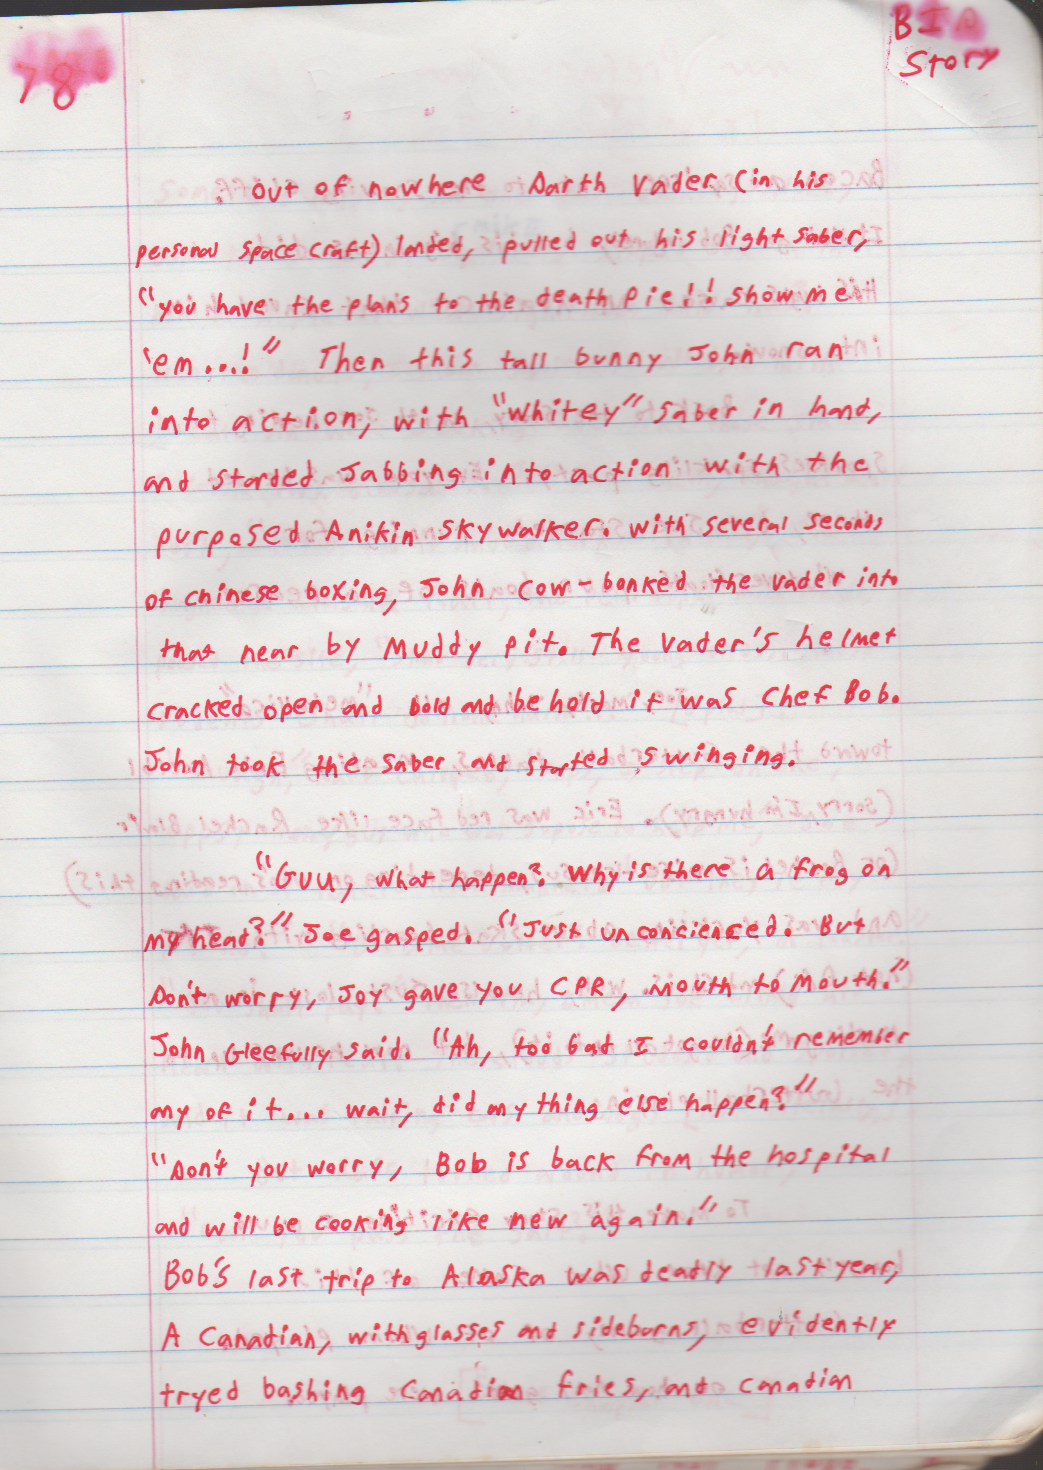 78
BIA
Story
Out of nowhere Darth Vader (in his
personal space craft) landed, pulled out his light saber,
"you have the plans to the death pie!! show me
'em...!" Then this tall bunny John ran
into action, with "Whitey" saber in hand,
and starded Jabbing into action with the
purposed Anikin Skywalker. with several seconds
of chinese boxing, John cow-bonked the vader into
that near by Muddy pit. The Vader's helmet
cracked open and bold and behold it was Chef Bob.
John took the saber and started swinging.
"Guu, what happen? Why is there a frog on
my head?" Joe gasped. "Just unconcienced. But
Don't worry, Joy gave you CPR, Mouth to Mouth."
John Gleefully said. "Ah, too bad I couldn't remember
any of it... wait, did anything else happen?"
"Don't you worry, Bob is back from the hospital
and will be cooking like new again."
Bob's last trip to Alaska was deadly last year,
A Canadian, with glasses and sideburns, evidently
tryed bashing Canadian fries, and canadian